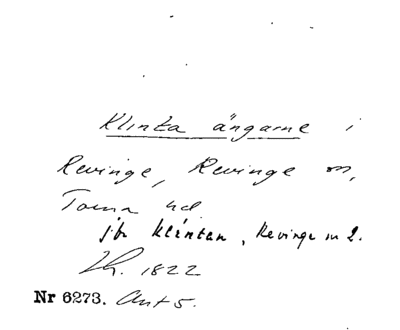 Klinta ängarne i
Revinge, Revinge sn,
Torna hd
jfr Klintan, Revinge sn 2.
1822
Nr 6273. Akt 5.